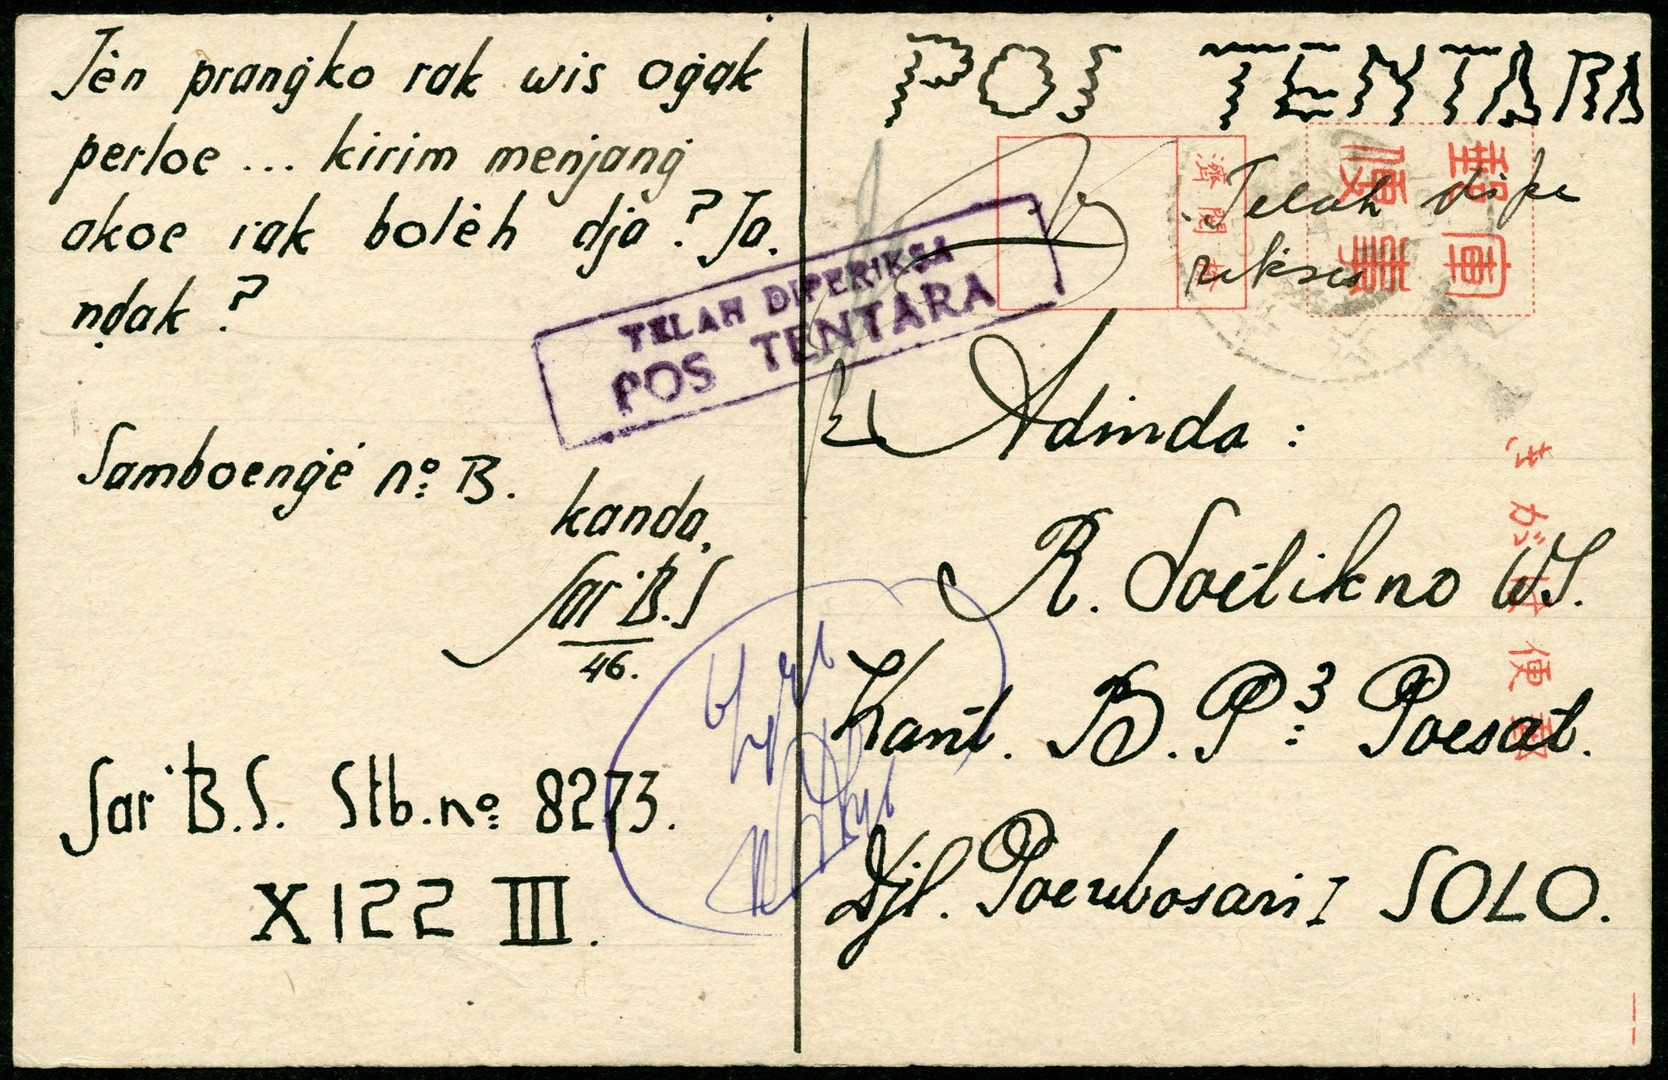 Jèn prangko rak wis ogak
perloe ... kirim menjang
akoe rak bolèh dja? Ja.
ndak?
Samboengé no: B.
kanda,
Sar B.S
46.
Sar B.S. Stb. no: 8273.
X 122 III.
POS TENTARA
軍事
郵便
検閲済
Telah dipe
rikso
TELAH DIPERIKSA
POS TENTARA
Adinda :
R. Soetikno WS.
Kant. B.P: 3 Poesat.
Djl. Poerwosari I SOLO.
きがは便郵